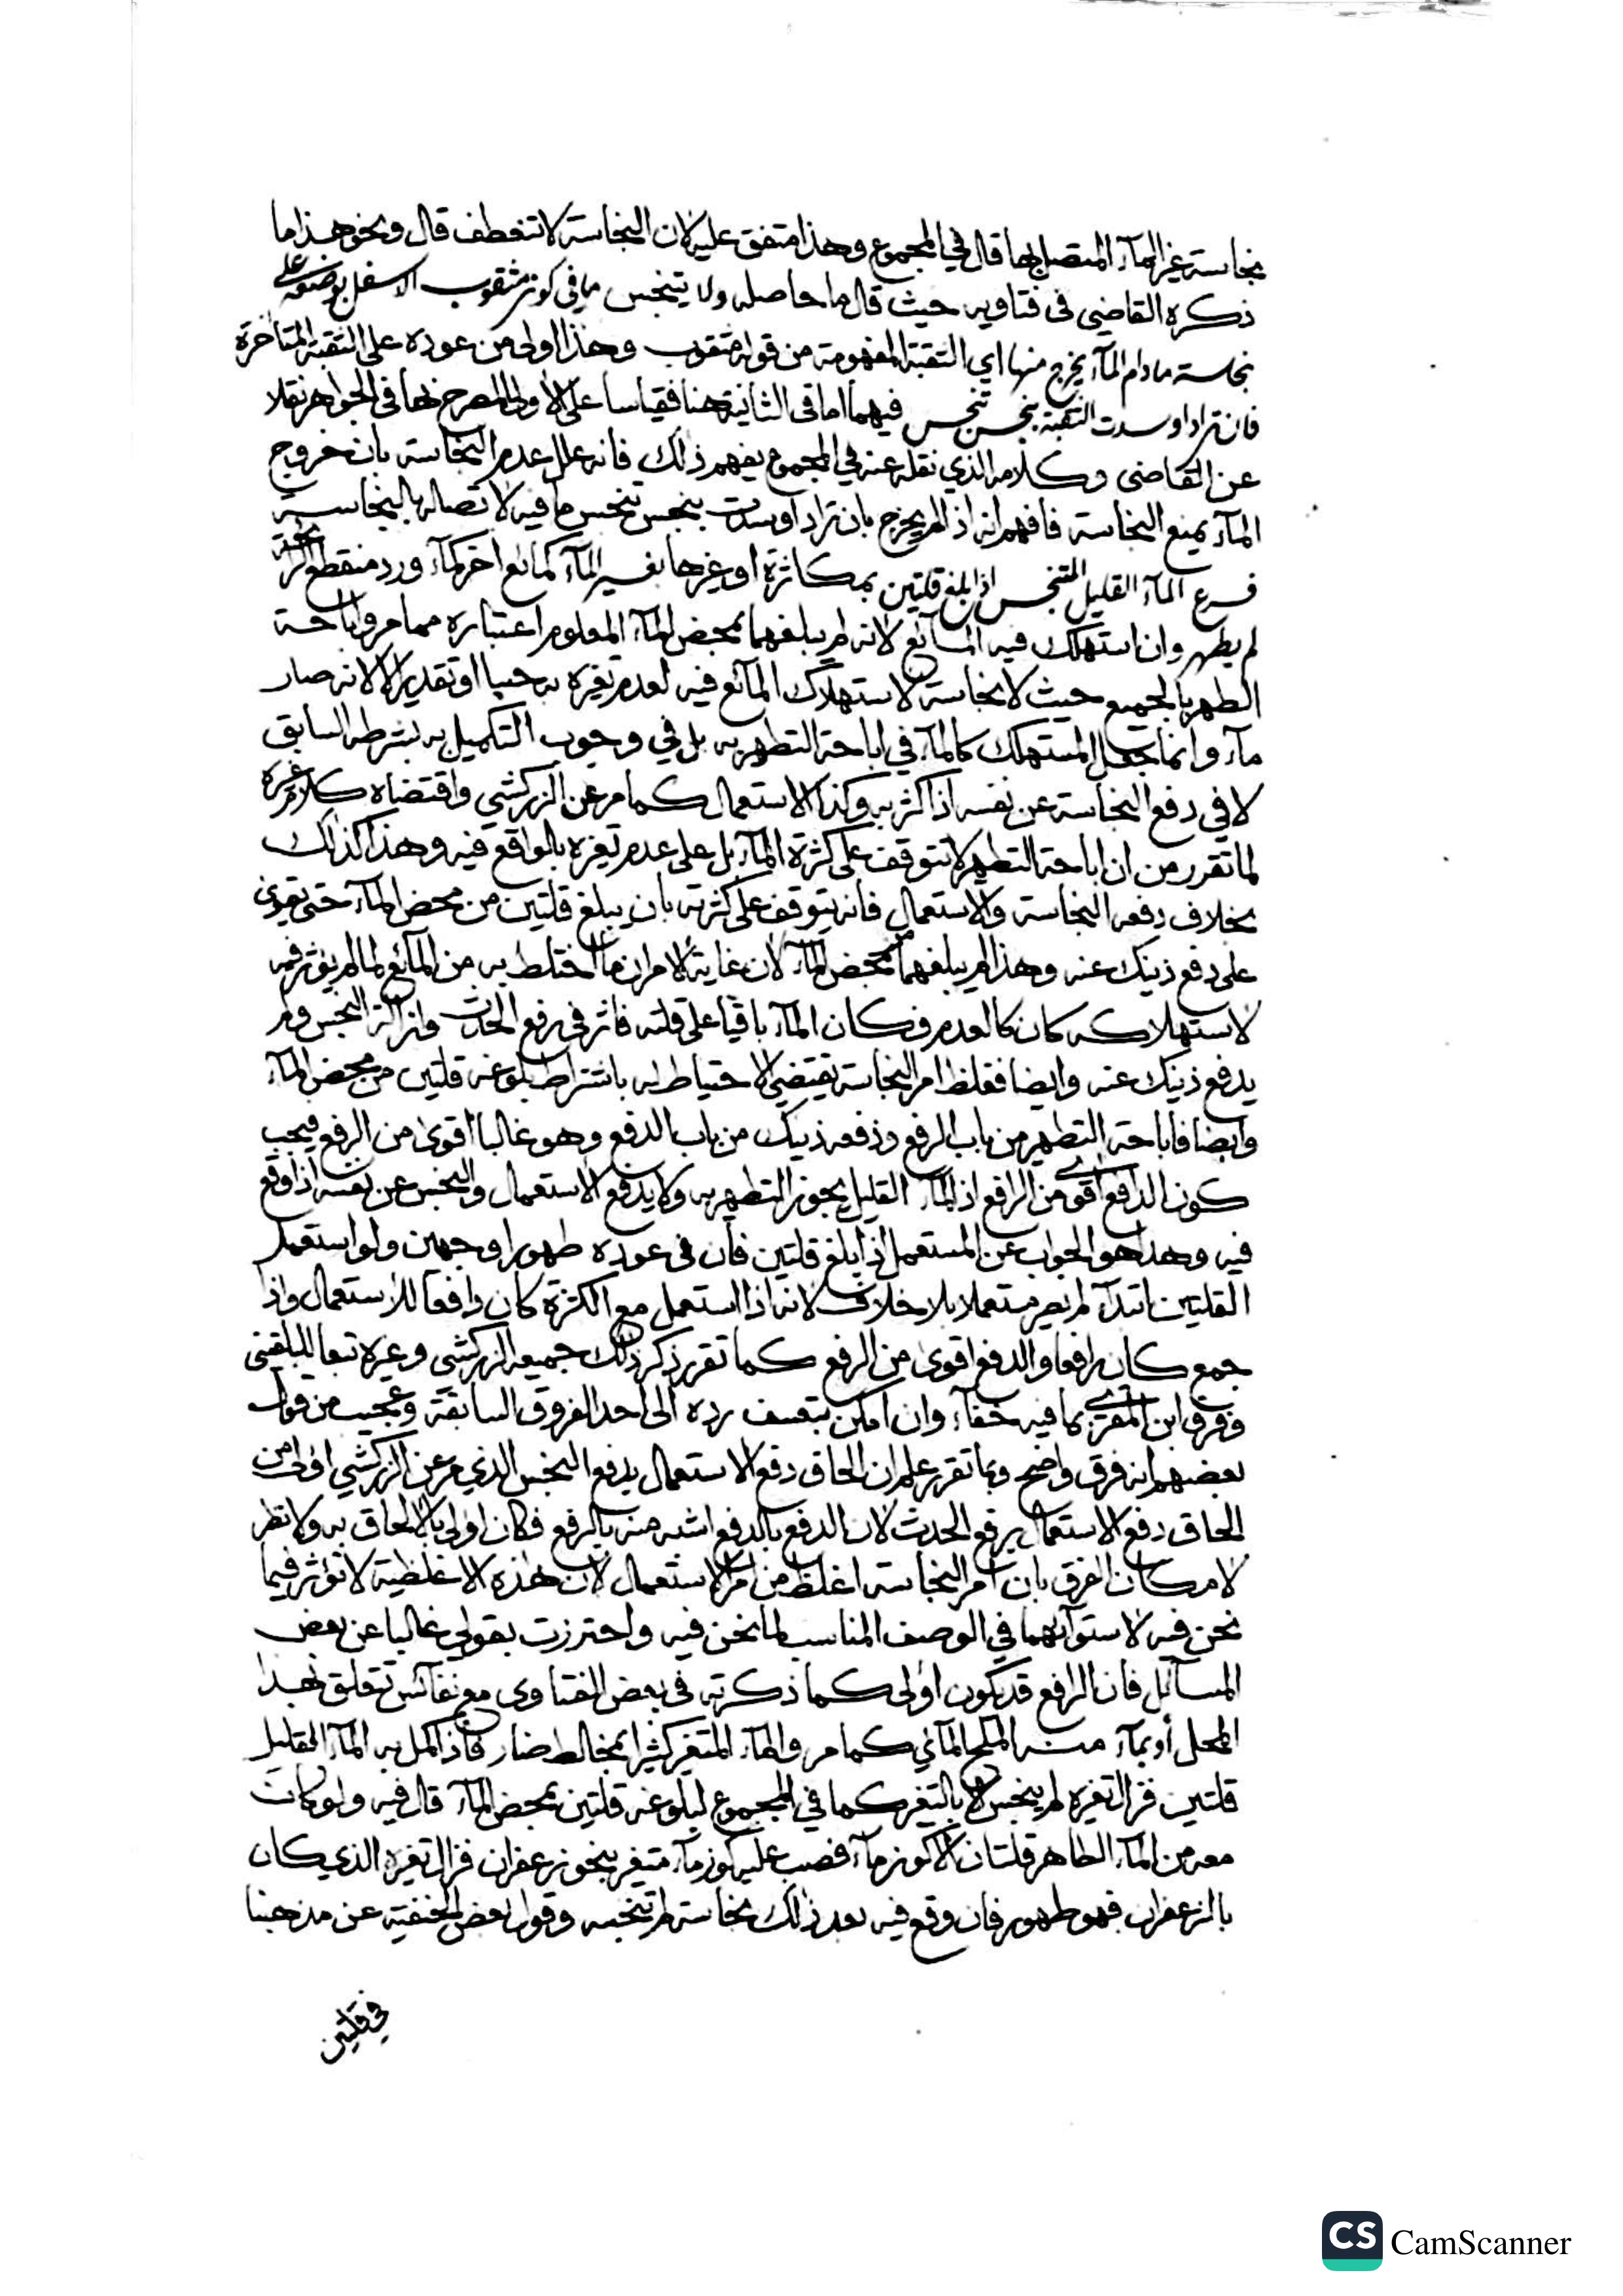 نجاسة غير المآء المتصل بها قال في المجموع وهذا متفق عليه لان النجاسة لا تنعطف قال ونحو هذا ما
ذكره القاضي في فتاويه حيث قال ما حاصله ولا يتنجس ما في كوز مثقوب الاسفل بوضعه على
نجاسة مادام المآء يخرج منها اي الثقبة المفهومة من قوله مثقوب وهذا اولى من عوده على الثقبة المتاخرة
فان تراد او سدت الثقبة بنجس تنجس فيهما اما في الثانية هنا فقياسا على الاولى المصرح بها في الجواهر نقلا
عن القاضي وكلامه الذي نقله عنه في المجموع يفهم ذلك فانه علل عدم النجاسة بان خروج
المآء يمنع النجاسة فافهم انه اذا لم يخرج بان تراد او سدت بنجس تنجس ما فيه لاتصاله بالنجاسة
فرع المآء القليل المتنجس اذا بلغ قلتين بمكاثرة او غيرها بغير المآء كمائع اخر كمآء ورد منقطع الرائحة
لم يطهر وان استهلك فيه المآئع لانه لم يبلغهما بمحض المآء المعلوم اعتباره مما مر واباحة
الطهر بالجميع حيث لا نجاسة لاستهلاك المآئع فيه لعدم تغيره به حسا او تقديرا لا لانه صار
مآء وانما جعل المستهلك كالمآء في اباحة التطهر به بل في وجوب التكميل به بشرطه السابق
لا في دفع النجاسة عن نفسه اذا كثر به وكذا الاستعمال كما مر عن الزركشي واقتضاه كلام غيره
لما تقرر من ان اباحة التطهر لا تتوقف على كثرة المآء بل على عدم تغيره بالواقع فيه وهذا كذلك
بخلاف دفعه النجاسة والاستعمال فانه يتوقف على كثرته بان يبلغ قلتين من محض المآء حتى يقوى
على دفع ذينك عنه وهذا لم يبلغهما من محض المآء لان غاية الامر ان ما اختلط به من المآئع لما لم يؤثر فيه
لاستهلاكه كان كالعدم فكان المآء باقيا على قلته فاثر في رفع الحدث وازالة النجس ولم
يدفع ذينك عنه وايضا فغلظ امر النجاسة يقتضي الاحتياط له باشتراط بلوغه قلتين من محض المآء
وايضا فاباحة التطهر من باب الرفع ودفعه ذينك من باب الدفع وهو غالبا اقوى من الرفع فيجب
كون الدافع اقوى من الرافع اذ المآء القليل يجوز التطهر به ولا يدفع الاستعمال والنجس عن نفسه اذا وقع
فيه وهذا هو الجواب عن المستعمل اذا بلغ قلتين فان في عوده طهورا وجهين ولو استعمل
القلتين ابتدآء لم يصر مستعملا بلا خلاف لانه اذا استعمل مع الكثرة كان دافعا للاستعمال واذا
جمع كان رافعا والدفع اقوى من الرفع كما تقرر ذكر ذلك جميعه الزركشي وغيره تبعا للبلقيني
وفرق ابن المقرئ بما فيه خفآء وان امكن بتعسف رده الى احد الفروق السابقة وعجيب من قول
بعضهم انه فرق واضح وبما تقرر علم ان الحاق دفع الاستعمال بدفع النجس الذي مر عن الزركشي اولى من
الحاق دفع الاستعمال برفع الحدث لان الدفع بالدفع اشبه منه بالرفع فكان اولى بالالحاق به ولا نظر
لامكان الفرق بان امر النجاسة اغلظ من امر الاستعمال لان هذه الاغلظية لا تؤثر فيما
نحن فيه لاستوآئهما في الوصف المناسب لما نحن فيه واحترزت بقولي غالبا عن بعض
المسآئل فان الرافع قد يكون اولى كما ذكرته في بعض الفتاوى مع نفآئس تتعلق بهذا
المحل او بمآء منه الملح المآئي كما مر والمآء المتغير كثيرا بمخالط ضار فاذا كمل به المآء القليل
قلتين فزال تغيره لم ينجس الا بالتغير كما في المجموع لبلوغه قلتين بمحض المآء قال فيه ولو كان
معه من المآء الطاهر قلتان الا كوز مآء فصب عليه كوز مآء متغير بنحو زعفران فزال تغيره الذي كان
بالزعفران فهو طهور فان وقع فيه بعد ذلك نجاسة لم تنجسه وقول بعض الحنفية عن مذهبنا
في قلتين
CS CamScanner